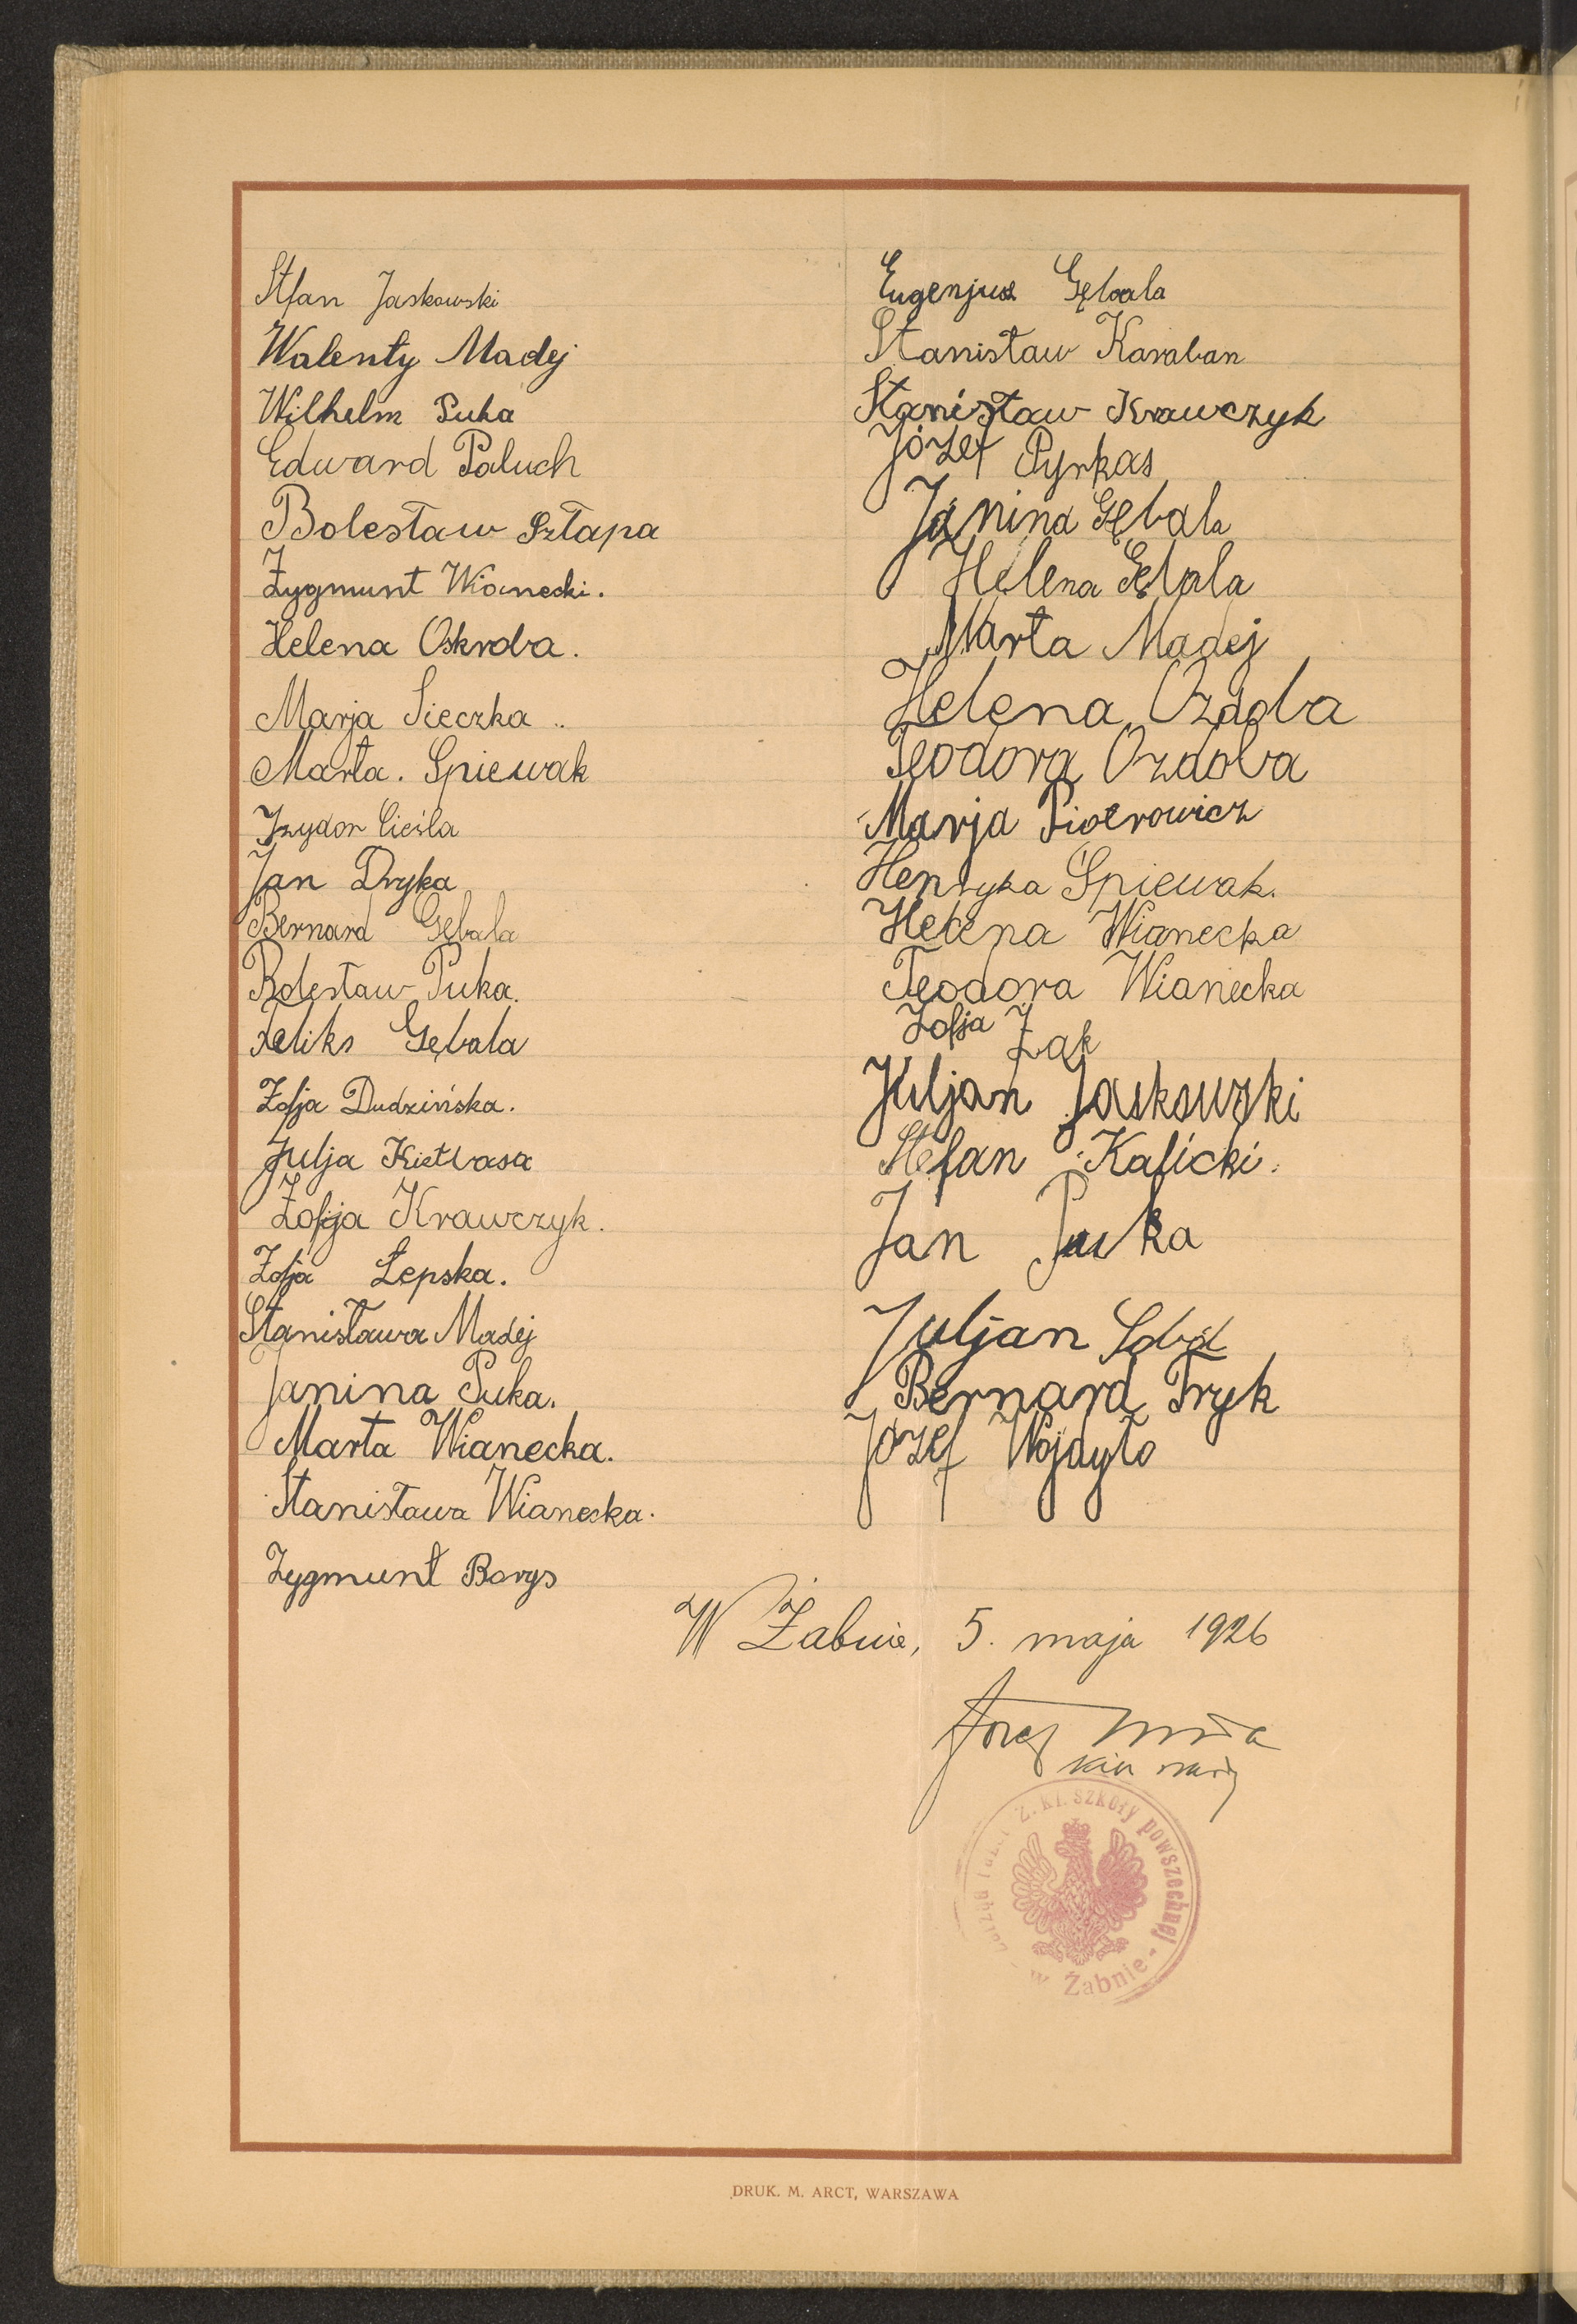 Stfan Jaskowski
Walenty Madej
Wilhelm Puka
Edward Paluch
Bolesław Szłapa
Zygmunt Wianecki.
Helena Oskroba.
Marja Sieczka ..
Marta. Spiewak
Izydor Cieśla
Jan Dryka
Bernard Gębala
Bolesław Puka.
Feliks Gębala
Zofja Dudzińska.
Julja Kiełbasa
Zofja Krawczyk.
Zofja Łepska.
Stanisława Madej
Janina Puka.
Marta Wianecka.
Stanisława Wianecka.
Zygmunt Borys
Eugenjusz Gębala
Stanisław Karaban
Stanisław Krawczyk
Józef Pyrkas
Janina Gębala
Helena Gębala
Marta Madej
Helena Ozdoba
Teodora Ozdoba
Marja Piotrowicz
Henryka Śpiewak.
Helena Wianecka
Teodora Wianecka
Zofja Żak
Juljan Jaskowski
Stefan Kaficki.
Jan Puka
Juljan
Bernard Tryk
Józef Wojdyło
W Żabnie, 5. maja 1926
2. kl. szkoły powszechnej
w Żabnie
DRUK. M. ARCT, WARSZAWA